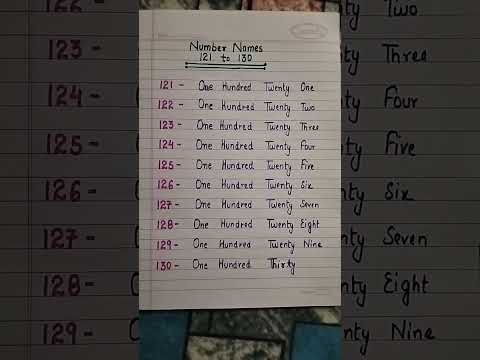 Number Names
121 to 130
121 - One Hundred Twenty One
122 - One Hundred Twenty Two
123 - One Hundred Twenty Three
124 - One Hundred Twenty Four
125 - One Hundred Twenty Five
126 - One Hundred Twenty Six
127 - One Hundred Twenty Seven
128 - One Hundred Twenty Eight
129 - One Hundred Twenty Nine
130 - One Hundred Thirty
122 -
123 -
124 -
125 -
126 -
127 -
128 -
129 -
Two
Three
Four
Five
Six
Seven
Eight
Nine